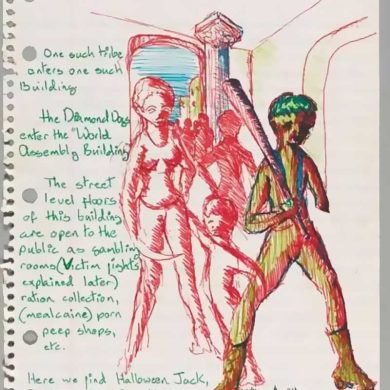 One such tribe
enters one such
Building
the Diamond Dogs
enter the "World
Assembly Building
The street
level floors
of this building
are open to the
public as gambling
rooms (Victim fights
explained later)
ration collection,
(mealcaine) porn
peep shops,
etc.
Here we find Halloween Jack,